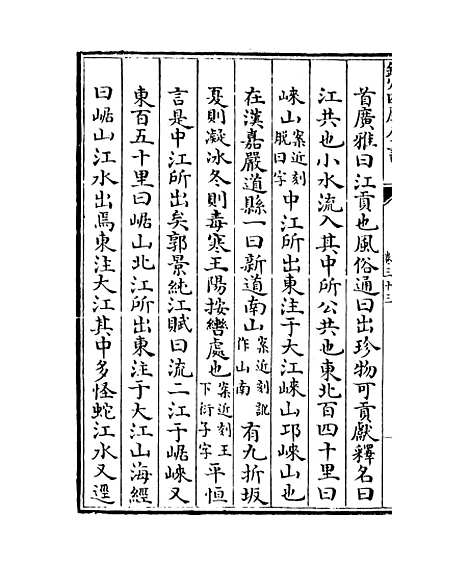 卷三十三
首廣雅曰江貢也風俗通曰出珍物可貢獻釋名曰
江共也小水流入其中所公共也東北百四十里曰
崍山案近刻脫曰字中江所出東注于大江崍山邛崍山也
在漢嘉嚴道縣一曰新道南山案近刻訛作山南有九折坂
夏則凝冰冬則毒寒王陽按轡處也案近刻王下衍子字平恒
言是中江所出矣郭景純江賦曰流二江于崌崍又
東百五十里曰崌山北江所出東注于大江山海經
曰崌山江水出焉東注大江其中多怪蛇江水又逕